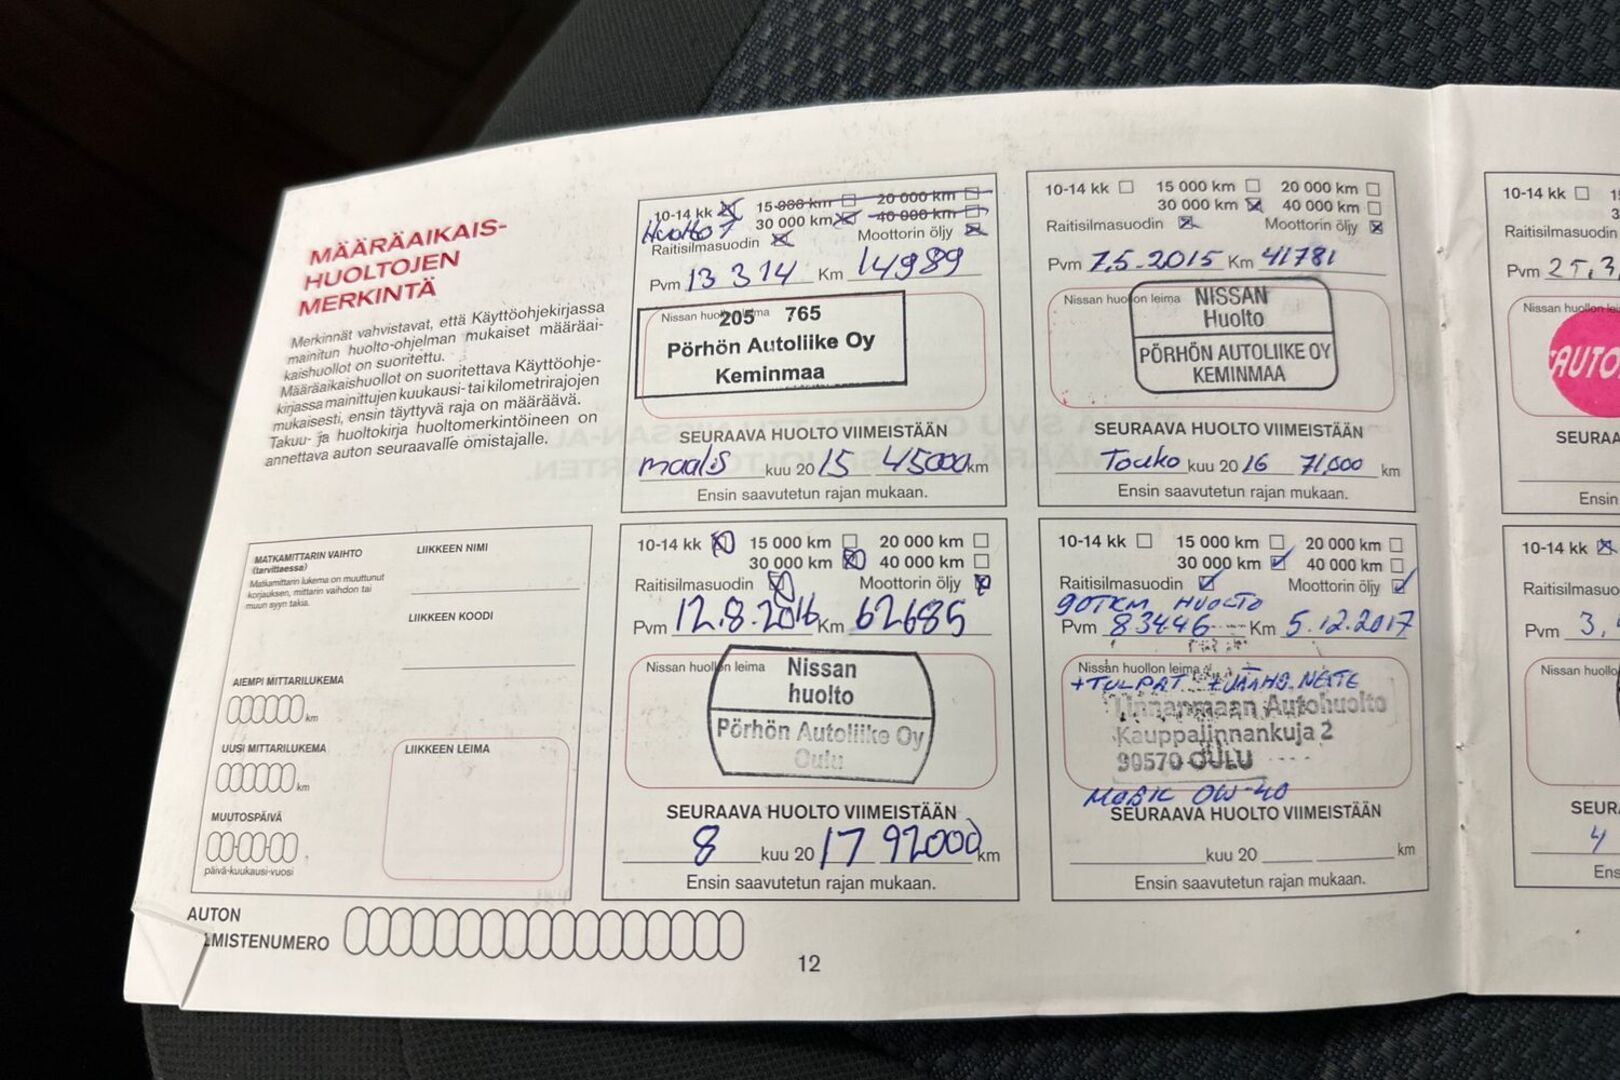 MÄÄRÄAIKAIS-
HUOLTOJEN
MERKINTÄ
Merkinnät vahvistavat, että Käyttöohjekirjassa
mainitun huolto-ohjelman mukaiset määräai-
kaishuollot on suoritettu.
Määräaikaishuollot on suoritettava Käyttöohje-
kirjassa mainittujen kuukausi- tai kilometrirajojen
mukaisesti, ensin täyttyvä raja on määräävä.
Takuu- ja huoltokirja huoltomerkintöineen on
annettava auton seuraavalle omistajalle.
MATKAMITTARIN VAIHTO
(tarvittaessa)
Matkamittarin lukema on muuttunut
korjauksen, mittarin vaihdon tai
muun syyn takia.
AIEMPI MITTARILUKEMA
km
UUSI MITTARILUKEMA
km
MUUTOSPÄIVÄ
päivä-kuukausi-vuosi
LIIKKEEN NIMI
LIIKKEEN KOODI
LIIKKEEN LEIMA
AUTON
LMISTENUMERO
10-14 kk 15 000 km 20 000 km
30 000 km 40 000 km
Huolto
Raitisilmasuodin Moottorin öljy
Pvm 13 3 14 Km 14989
Nissan huollon leima
205 765
Pörhön Autoliike Oy
Keminmaa
SEURAAVA HUOLTO VIIMEISTÄÄN
maalis kuu 20 15 45000 km
Ensin saavutetun rajan mukaan.
10-14 kk 15 000 km 20 000 km
30 000 km 40 000 km
Raitisilmasuodin Moottorin öljy
Pvm 7.5.2015 Km 41781
Nissan huollon leima
NISSAN
Huolto
PÖRHÖN AUTOLIIKE OY
KEMINMAA
SEURAAVA HUOLTO VIIMEISTÄÄN
Touko kuu 20 16 71,000 km
Ensin saavutetun rajan mukaan.
10-14 kk 15 000 km 20 000 km
30 000 km 40 000 km
Raitisilmasuodin Moottorin öljy
Pvm 12.8.2016 Km 62685
Nissan huollon leima
Nissan
huolto
Pörhön Autoliike Oy
Oulu
SEURAAVA HUOLTO VIIMEISTÄÄN
8 kuu 20 17 92000 km
Ensin saavutetun rajan mukaan.
10-14 kk 15 000 km 20 000 km
30 000 km 40 000 km
Raitisilmasuodin Moottorin öljy
90TKM HUOLTO
Pvm 83446 Km 5.12.2017
Nissan huollon leima
+TULPAT +JÄÄHD.NESTE
Linnanmaan Autohuolto
Kauppalinnankuja 2
90570 OULU
MOBIL 0W-40
SEURAAVA HUOLTO VIIMEISTÄÄN
kuu 20 km
Ensin saavutetun rajan mukaan.
12
10-14 kk
Raitisilmasuodin
Pvm
Nissan huollon
AUTO
SEURAA
Ensin
10-14 kk
Raitisilmasuo
Pvm 3,
Nissan huollo
SEUR
4
Ens